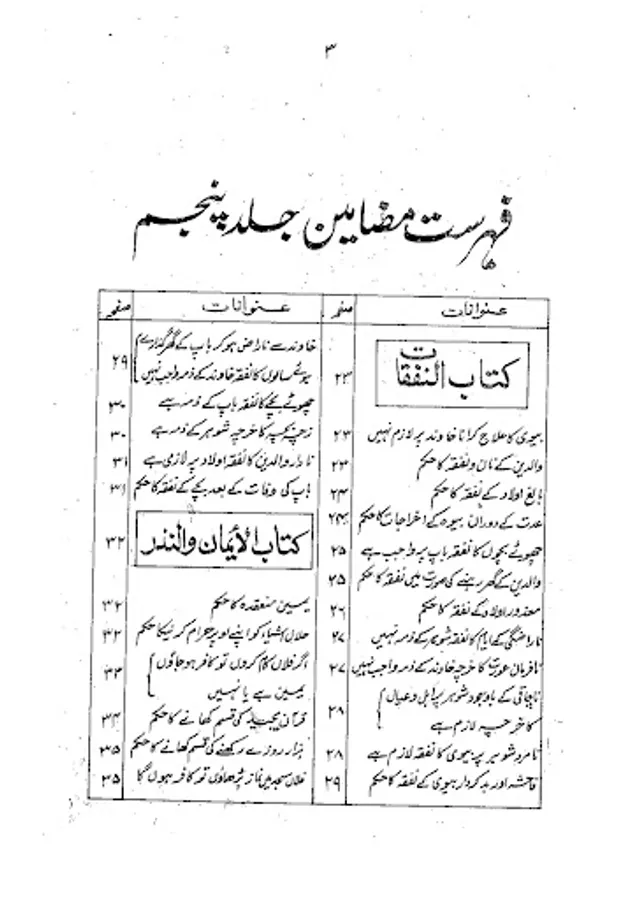 ۳
فہرست مضامین جلد پنجم
عنوانات صفحہ
کتاب النفقات ۲۳
بیوی کا علاج کرانا خاوند پر لازم نہیں ۲۳
والدین کے نان و نفقہ کا حکم ۲۳
بالغ اولاد کے نفقہ کا حکم ۲۴
عدت کے دوران بیوہ کے اخراجات کا حکم ۲۴
چھوٹے بچوں کا نفقہ باپ پر واجب ہے ۲۵
والدین کے گھر رہنے کی صورت میں نفقہ کا حکم ۲۵
معذور اولاد کے نفقہ کا حکم ۲۶
ناراضگی کے ایام کا نفقہ شوہر کے ذمہ نہیں ۲۷
نافرمان عورت کا خرچہ خاوند کے ذمہ واجب نہیں ۲۷
ناچاقی کے باوجود شوہر پر اہل و عیال
کا خرچہ لازم ہے ۲۸
نامرد شوہر پر بیوی کا نفقہ لازم ہے ۲۸
فاحشہ اور بدکردار بیوی کے نفقہ کا حکم ۲۹
عنوانات صفحہ
خاوند سے ناراض ہو کر باپ کے گھر گذارے
ہوئے سالوں کا نفقہ خاوند کے ذمہ واجب نہیں ۲۹
چھوٹے بچے کا نفقہ باپ کے ذمہ ہے ۳۰
زچہ بچہ کا خرچہ شوہر کے ذمہ ہے ۳۰
نادار والدین کا نفقہ اولاد پر لازمی ہے ۳۱
باپ کی وفات کے بعد بچے کے نفقہ کا حکم ۳۱
کتاب الأیمان والنذر ۳۲
یمین منعقدہ کا حکم ۳۲
حلال اشیاء کو اپنے اوپر حرام کرنیکا حکم ۳۲
اگر فلاں کام کروں تو کافر ہو جاؤں
یمین ہے یا نہیں ۳۳
قرآن مجید کی قسم کھانے کا حکم ۳۴
ہزار روزے رکھنے کی قسم کھانے کا حکم ۳۵
فلاں مسجد میں نماز پڑھاؤں تو کافر ہوں گا ۳۵